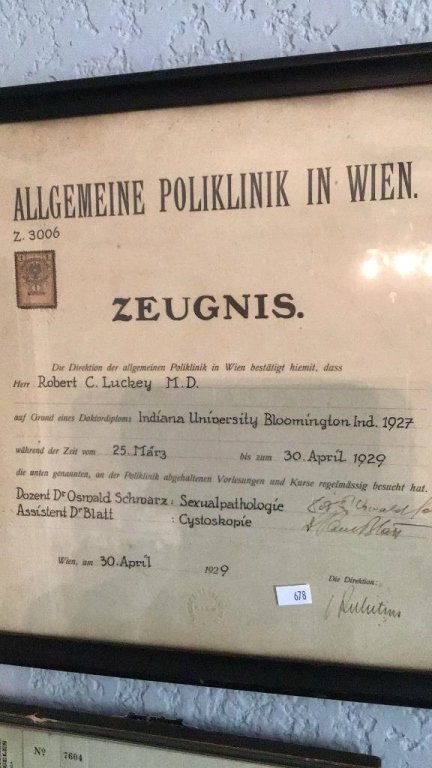 ALLGEMEINE POLIKLINIK IN WIEN.
Z. 3006
ZEUGNIS.
Die Direktion der allgemeinen Poliklinik in Wien bestätigt hiemit, dass
Herr Robert C. Luckey M.D.
auf Grund eines Doktordiploms Indiana University Bloomington Ind. 1927
während der Zeit vom 25. März bis zum 30. April 1929
die unten genannten, an der Poliklinik abgehaltenen Vorlesungen und Kurse regelmässig besucht hat.
Dozent Dr Oswald Schwarz : Sexualpathologie
Assistent Dr Blatt : Cystoskopie
Wien, am 30. April 1929
Die Direktion:
678
No 7604